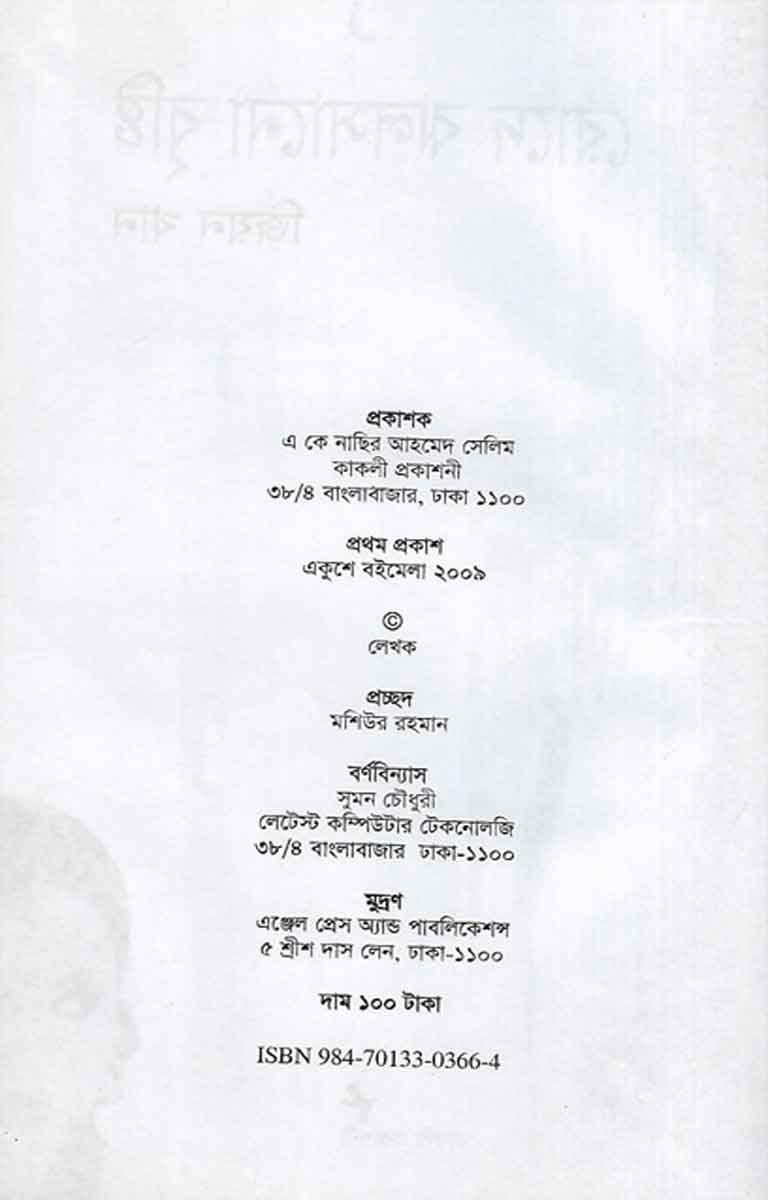 রোদে ঝলসানো বৃষ্টি
জিয়ন খান
প্রকাশক
এ কে নাছির আহমেদ সেলিম
কাকলী প্রকাশনী
৩৮/৪ বাংলাবাজার, ঢাকা ১১০০
প্রথম প্রকাশ
একুশে বইমেলা ২০০৯
©
লেখক
প্রচ্ছদ
মশিউর রহমান
বর্ণবিন্যাস
সুমন চৌধুরী
লেটেস্ট কম্পিউটার টেকনোলজি
৩৮/৪ বাংলাবাজার ঢাকা-১১০০
মুদ্রণ
এঞ্জেল প্রেস অ্যান্ড পাবলিকেশন্স
৫ শ্রীশ দাস লেন, ঢাকা-১১০০
দাম ১০০ টাকা
ISBN 984-70133-0366-4